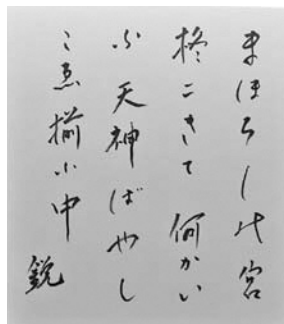 まほろしの宮
柊二きて何かい
ふ天神ばやし
こゑ揃ふ中
鋭